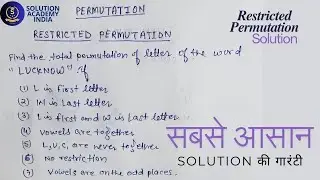 5
SOLUTION
ACADEMY
INDIA
PERMUTATION
RESTRICTED PERMUTATION
Find the total permutation of letter of the word
"LUCKNOW" if
(1) L is first letter
(2) W is last letter
(3) L is first and W is last letter
(4) vowels are together
(5) L, U, C, are never together
(6) No restriction
(7) Vowels are on the odd places.
Restricted
Permutation
Solution
सबसे आसान
SOLUTION की गारंटी